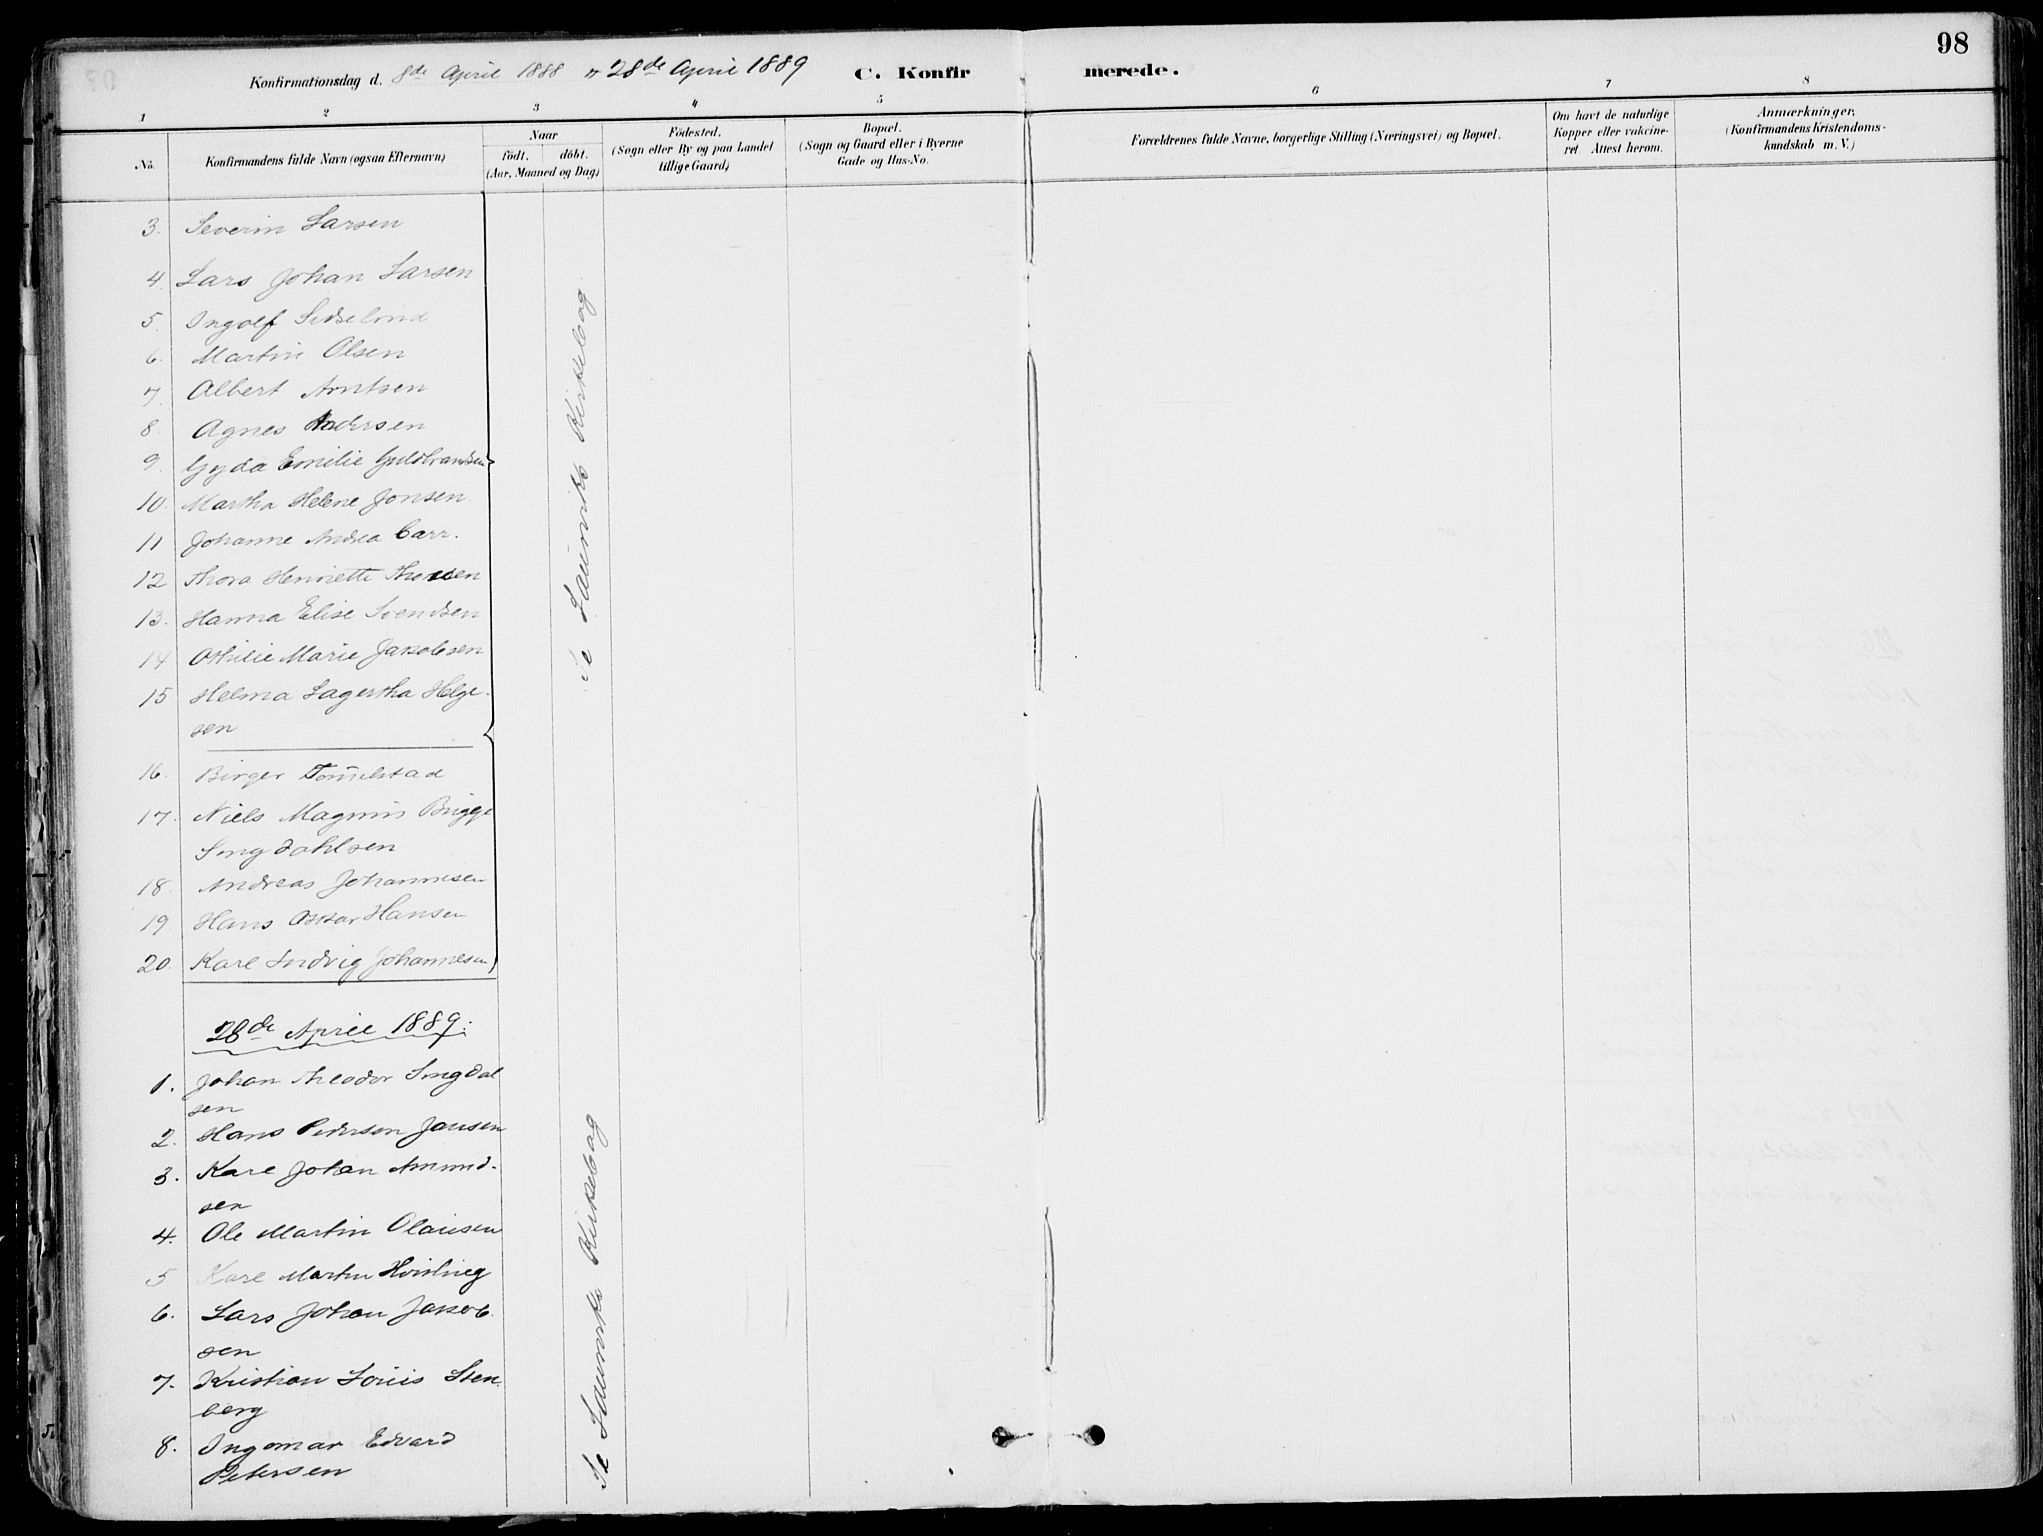 98
Konfirmationsdag d. 8de April 1888 & 28de April 1889 C. Konfirmerede.
1 2 3 4 5 6 7 8
No.
Konfirmandens fulde Navn (ogsaa Efternavn)
Naar
født. døbt.
(Aar, Maaned og Dag)
Födested.
(Sogn eller By og paa Landet
tillige Gaard)
Bopæl.
(Sogn og Gaard eller i Byerne
Gade og Hus-No.
Forældrenes fulde Navne, borgerlige Stilling (Næringsvei) og Bopæl.
Om havt de naturlige
Kopper eller vakcine-
ret. Attest herom.
Anmærkninger,
(Konfirmandens Kristendoms-
kundskab m. V.)
3. Severin Larsen
4. Lars Johan Larsen
5. Ingolf
6. Martin Olsen
7. Albert Arntsen
8. Agnes Andersen
9. Gyda Emilie Guldbrandsen
10. Martha Helene Jonsen
11 Johanne Andrea Carr.
12 Thora Henriette
13. Hanna Elise Svendsen
14 Othilie Marie Jakobsen
15 Helma Lagertha Helge-
sen
16. Birger
17. Niels Magnus Brigge
Smgdahlsen
18. Andreas Johannesen
19. Hans Oskar Hansen
20. Karl Ludvig Johannesen
Se Laurviks Kirkebog
28de April 1889.
1. Johan Theodor Smgdal
sen
2. Hans Pedersen Jansen
3. Karl Johan Amund-
sen
4. Ole Martin Olausen
5 Karl Martin
6. Lars Johan Jakob
sen
7. Kristian Louis Sten-
berg
8. Ingomar Edvard
Petersen
Se Laurviks Kirkebog